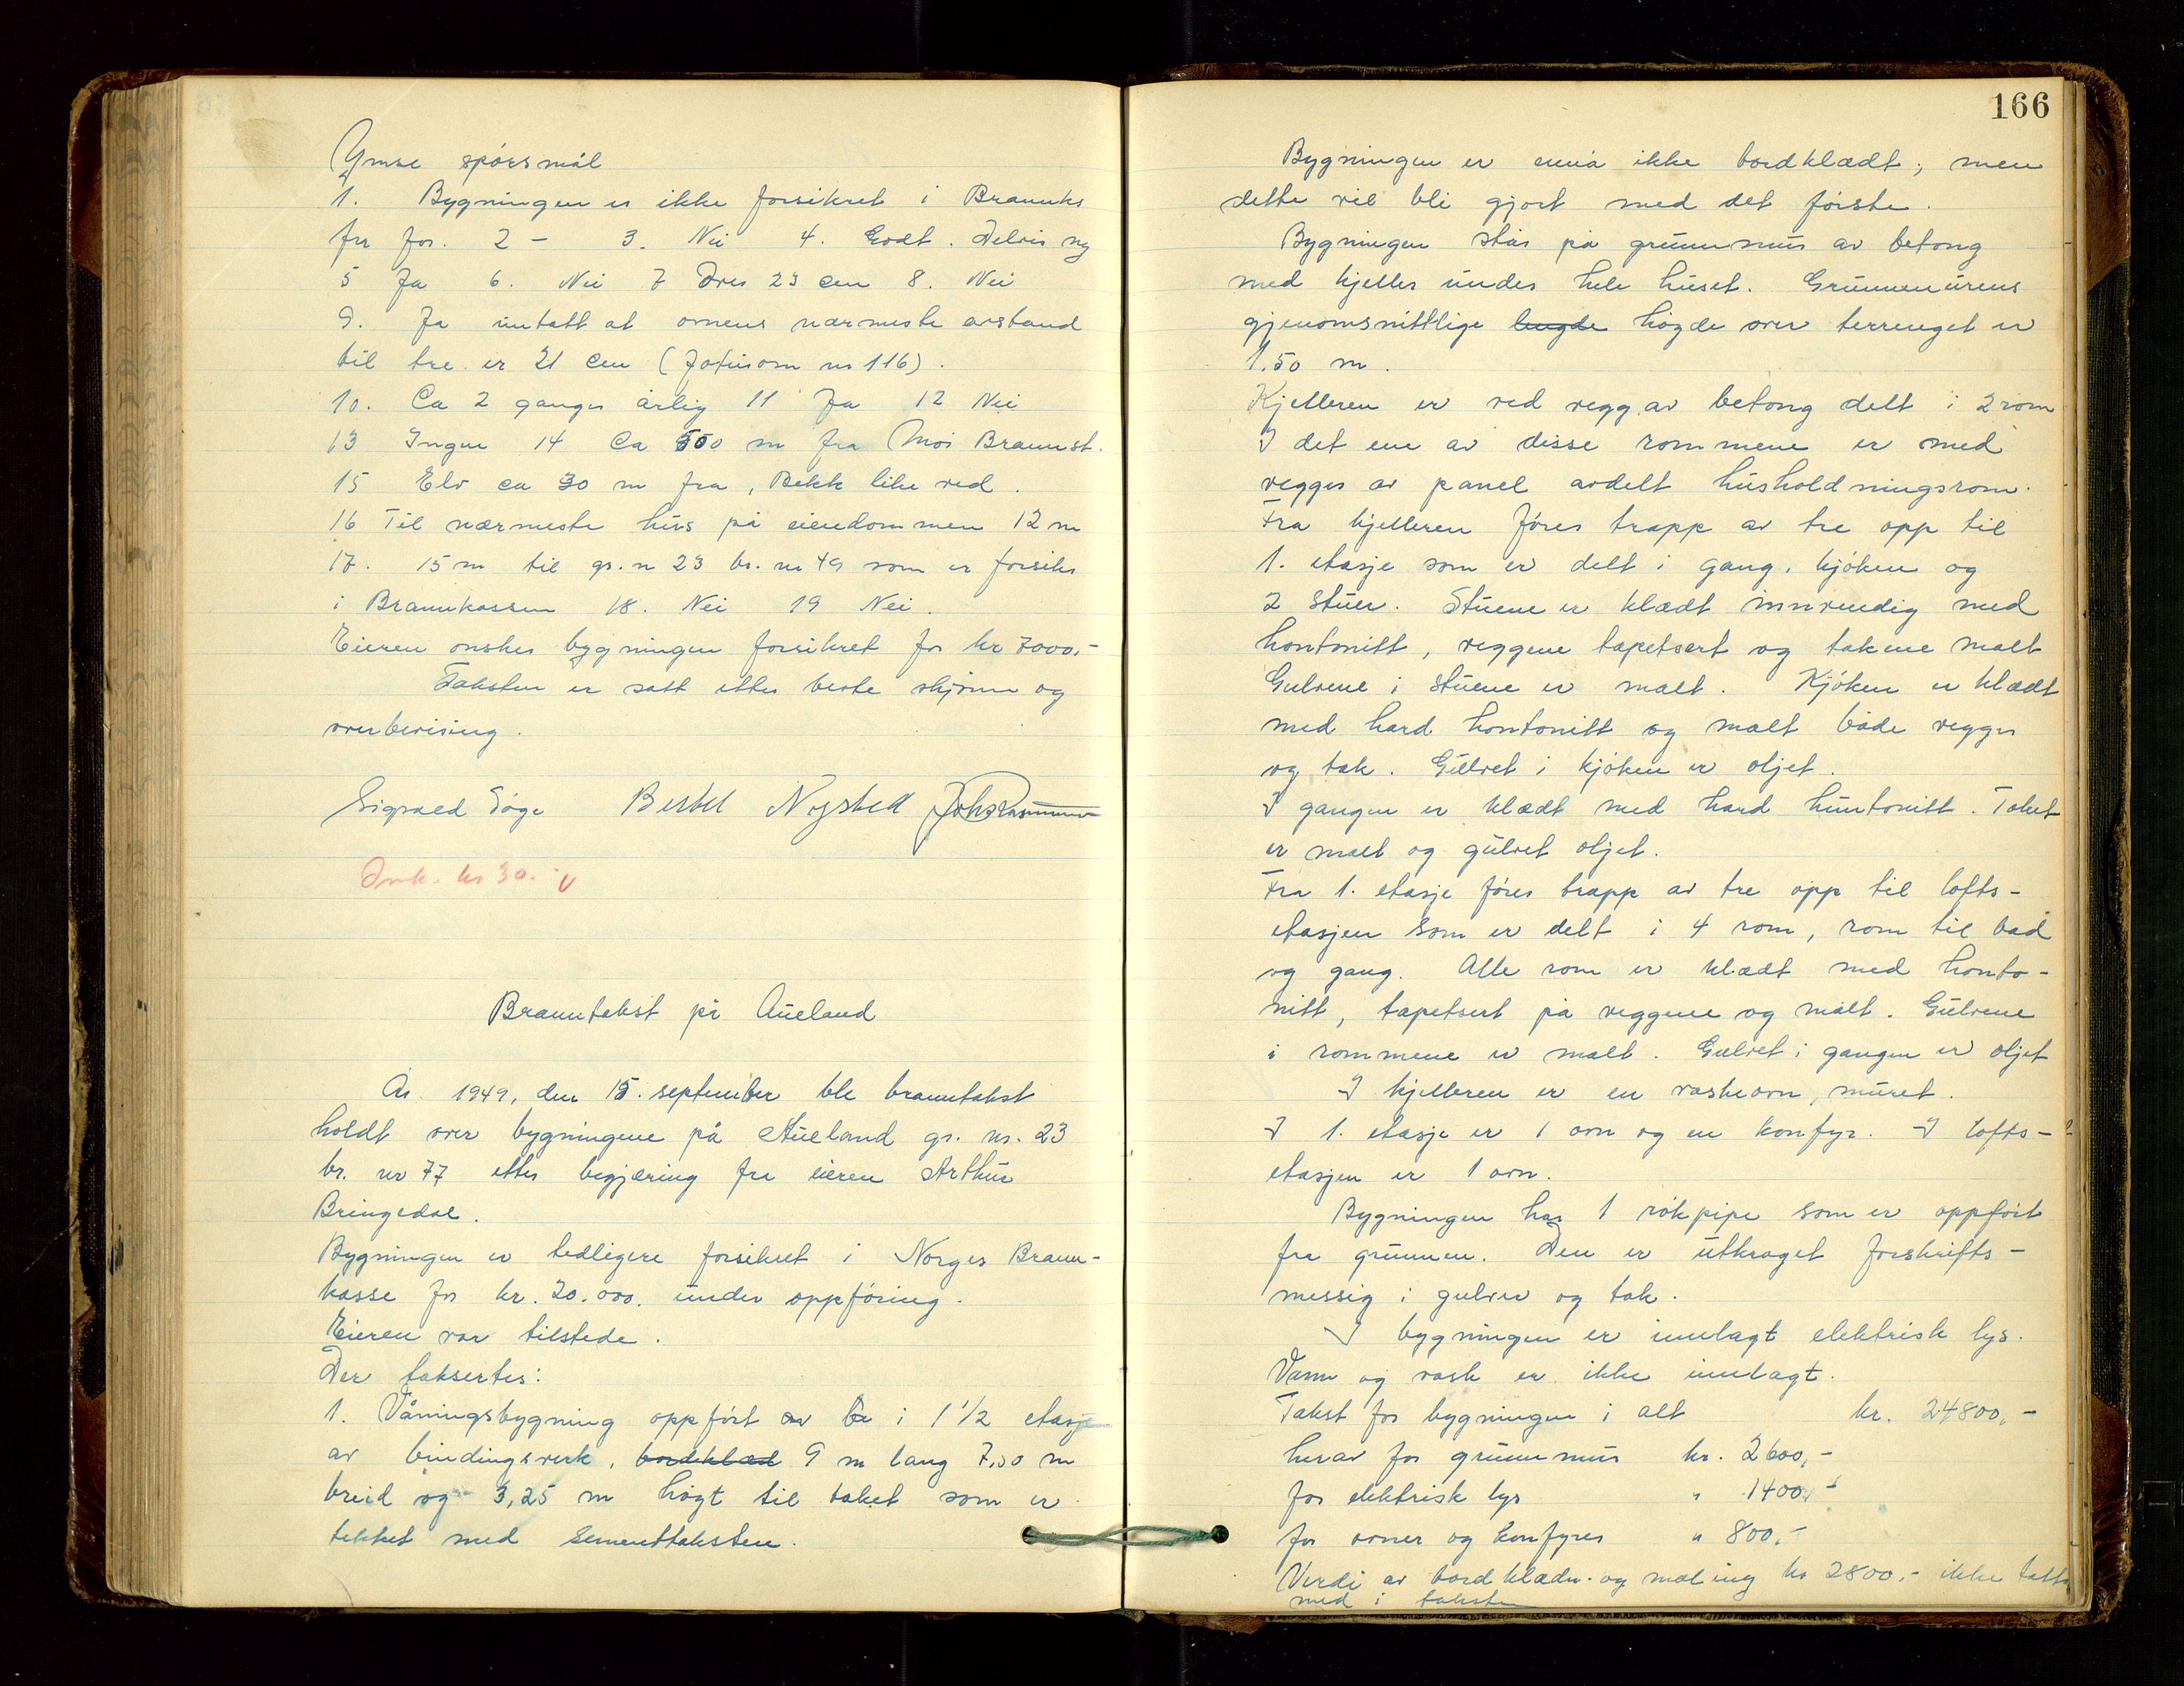 Ymse spörsmål
1. Bygningen er ikke forsikret i Brannks
fra før. 2 - 3. Nei 4. Godt. Delvis ny
5 Ja 6. Nei 7 Over 23 cm 8. Nei
9. Ja untatt at ovnens nærmeste avstand
til tre er 21 cm (Jøtulovn nr 116).
10. Ca 2 ganger årlig 11 Ja 12 Nei
13 Ingen 14 Ca 500 m fra Moi Brannst.
15 Elv ca 30 m fra, Bekk like ved.
16 Til nærmeste hus på eiendommen 12 m
17. 15 m til gr. n 23 br. nr 49 som er forsikr
i Brannkassen 18. Nei 19 Nei.
Eieren ønsker bygningen forsikret for kr 7000,-
Taksten er satt etter beste skjønn og
overbevising.
Sigvald Bertel Nystedt Joh Rasmussen
Innk. kr 30.- V
Branntakst på Aueland
År 1949, den 15. september ble branntakst
holdt over bygningene på Aueland gr. nr. 23
br. nr 77 etter begjæring fra eieren Arthur
Bringedal.
Bygningen er tedligere forsikret i Norges Brann-
kasse for kr. 20.000. under oppföring.
Eieren var tilstede.
Der taksertes:
1. Våningsbygning oppfört i 1 1/2 etasje
av bindingsverk, bordklæd 9 m lang 7,50 m
breid og 3,25 m högt til taket som er
tekket med sementtaksten.
166
Bygningen er ennå ikke bordklædt; men
dette vil bli gjort med det förste.
Bygningen står på grunnmur av betong
med kjeller under hele huset. Grunnmurens
gjenomsnittlige lengde högde over terrenget er
1.50 m.
Kjelleren er ved vegg av betong delt i 2 rom
I det ene av disse rommene er med
vegger av panel avdelt husholdningsrom.
Fra kjelleren föres trapp av tre opp til
1. etasje som er delt i gang, kjöken og
2 stuer. Stuene er klædt innvendig med
hontonitt, veggene tapetsert og takene malt
Gulvene i stuene er malt. Kjöken er klædt
med hard hontonitt og malt både vegger
og tak. Gulvet i kjöken er oljet.
I gangen er klædt med hard huntonitt. Taket
er malt og gulvet oljet.
Fra 1. etasje föres trapp av tre opp til lofts-
etasjen som er delt i 4 rom, rom til bad
og gang. Alle rom er klædt med honto-
nitt, tapetsert på veggene og malt. Gulvene
i rommene er malt. Gulvet i gangen er oljet
I kjelleren er en vaskeovn, muret.
I 1. etasje er 1 ovn og en komfyr. I lofts-
etasjen er 1 ovn.
Bygningen har 1 rökpipe som er oppfört
fra grunnen. Den er utkraget forskrifts-
messig i gulver og tak.
I bygningen er innlagt elektrisk lys.
Vann og vask er ikke innlagt.
Takst for bygningen i alt kr. 24800,-
herav for grunnmur kr. 2600,-
for elektrisk lys " 1400,-
for ovner og komfyrer " 800,-
Verdi av bordklædn. og maling kr 2800,- ikke tatt
med i taksten